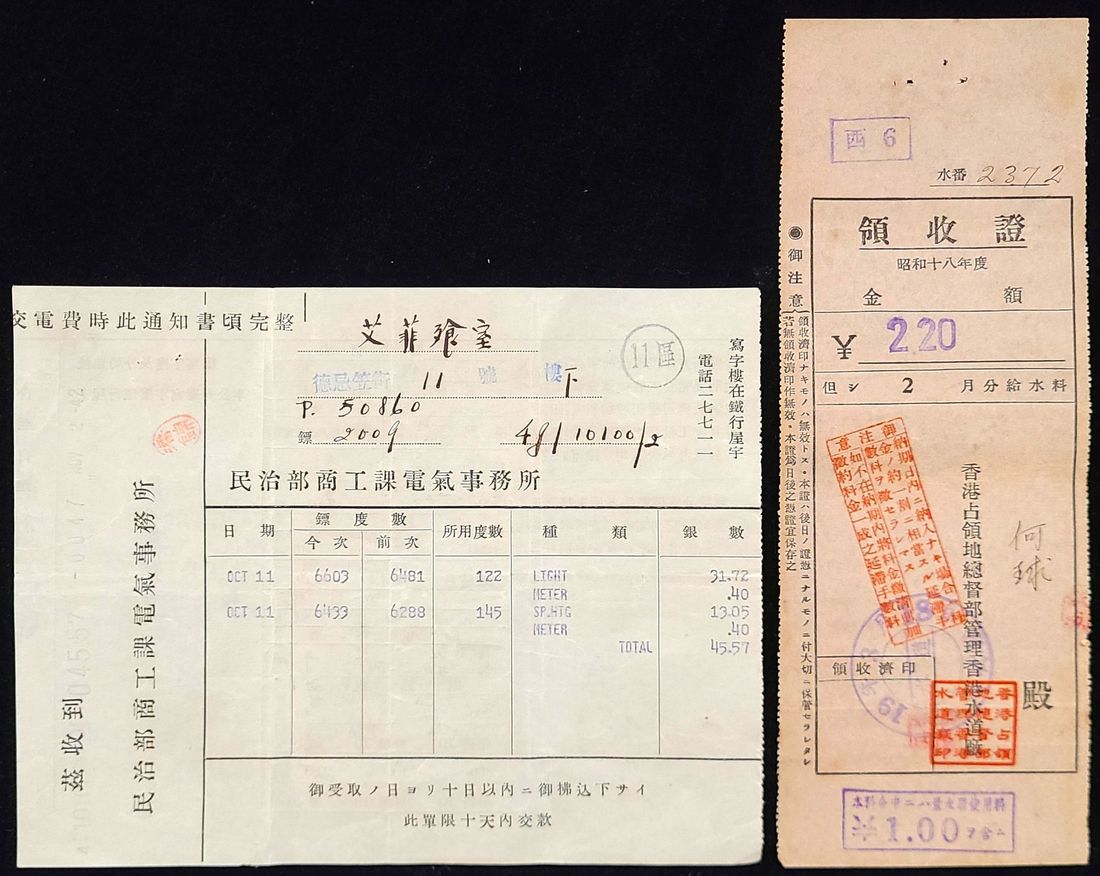 交電費時此通知書頃完整
茲收到
民治部商工課電氣事務所
艾菲飧室
德忌笠街 11 號 樓下
P. 50860
鏢 2009 48/10100/2
11區
寫字樓在鐵行屋宇
電話二七七一一
民治部商工課電氣事務所
日期 鏢度數 所用度數 種類 銀數
今次 前次
OCT 11 6603 6481 122 LIGHT 31.72
METER .40
OCT 11 6433 6288 145 SP.HTG 13.05
METER .40
TOTAL 45.57
御受取ノ日ヨリ十日以內ニ御拂込下サイ
此單限十天內交款
西 6
水番 2372
領收證
昭和十八年度
金額
¥ 2.20
但シ 2 月分給水料
御注意
領收濟印ナキモノハ無效トス・本證ハ後日ノ證憑ニナルモノニ付大切ニ保管セラレタシ
若無領收濟印作無效・本證爲日後之憑證宜保存之
香港占領地總督部管理香港水道廠
何球
殿
領收濟印
1.00